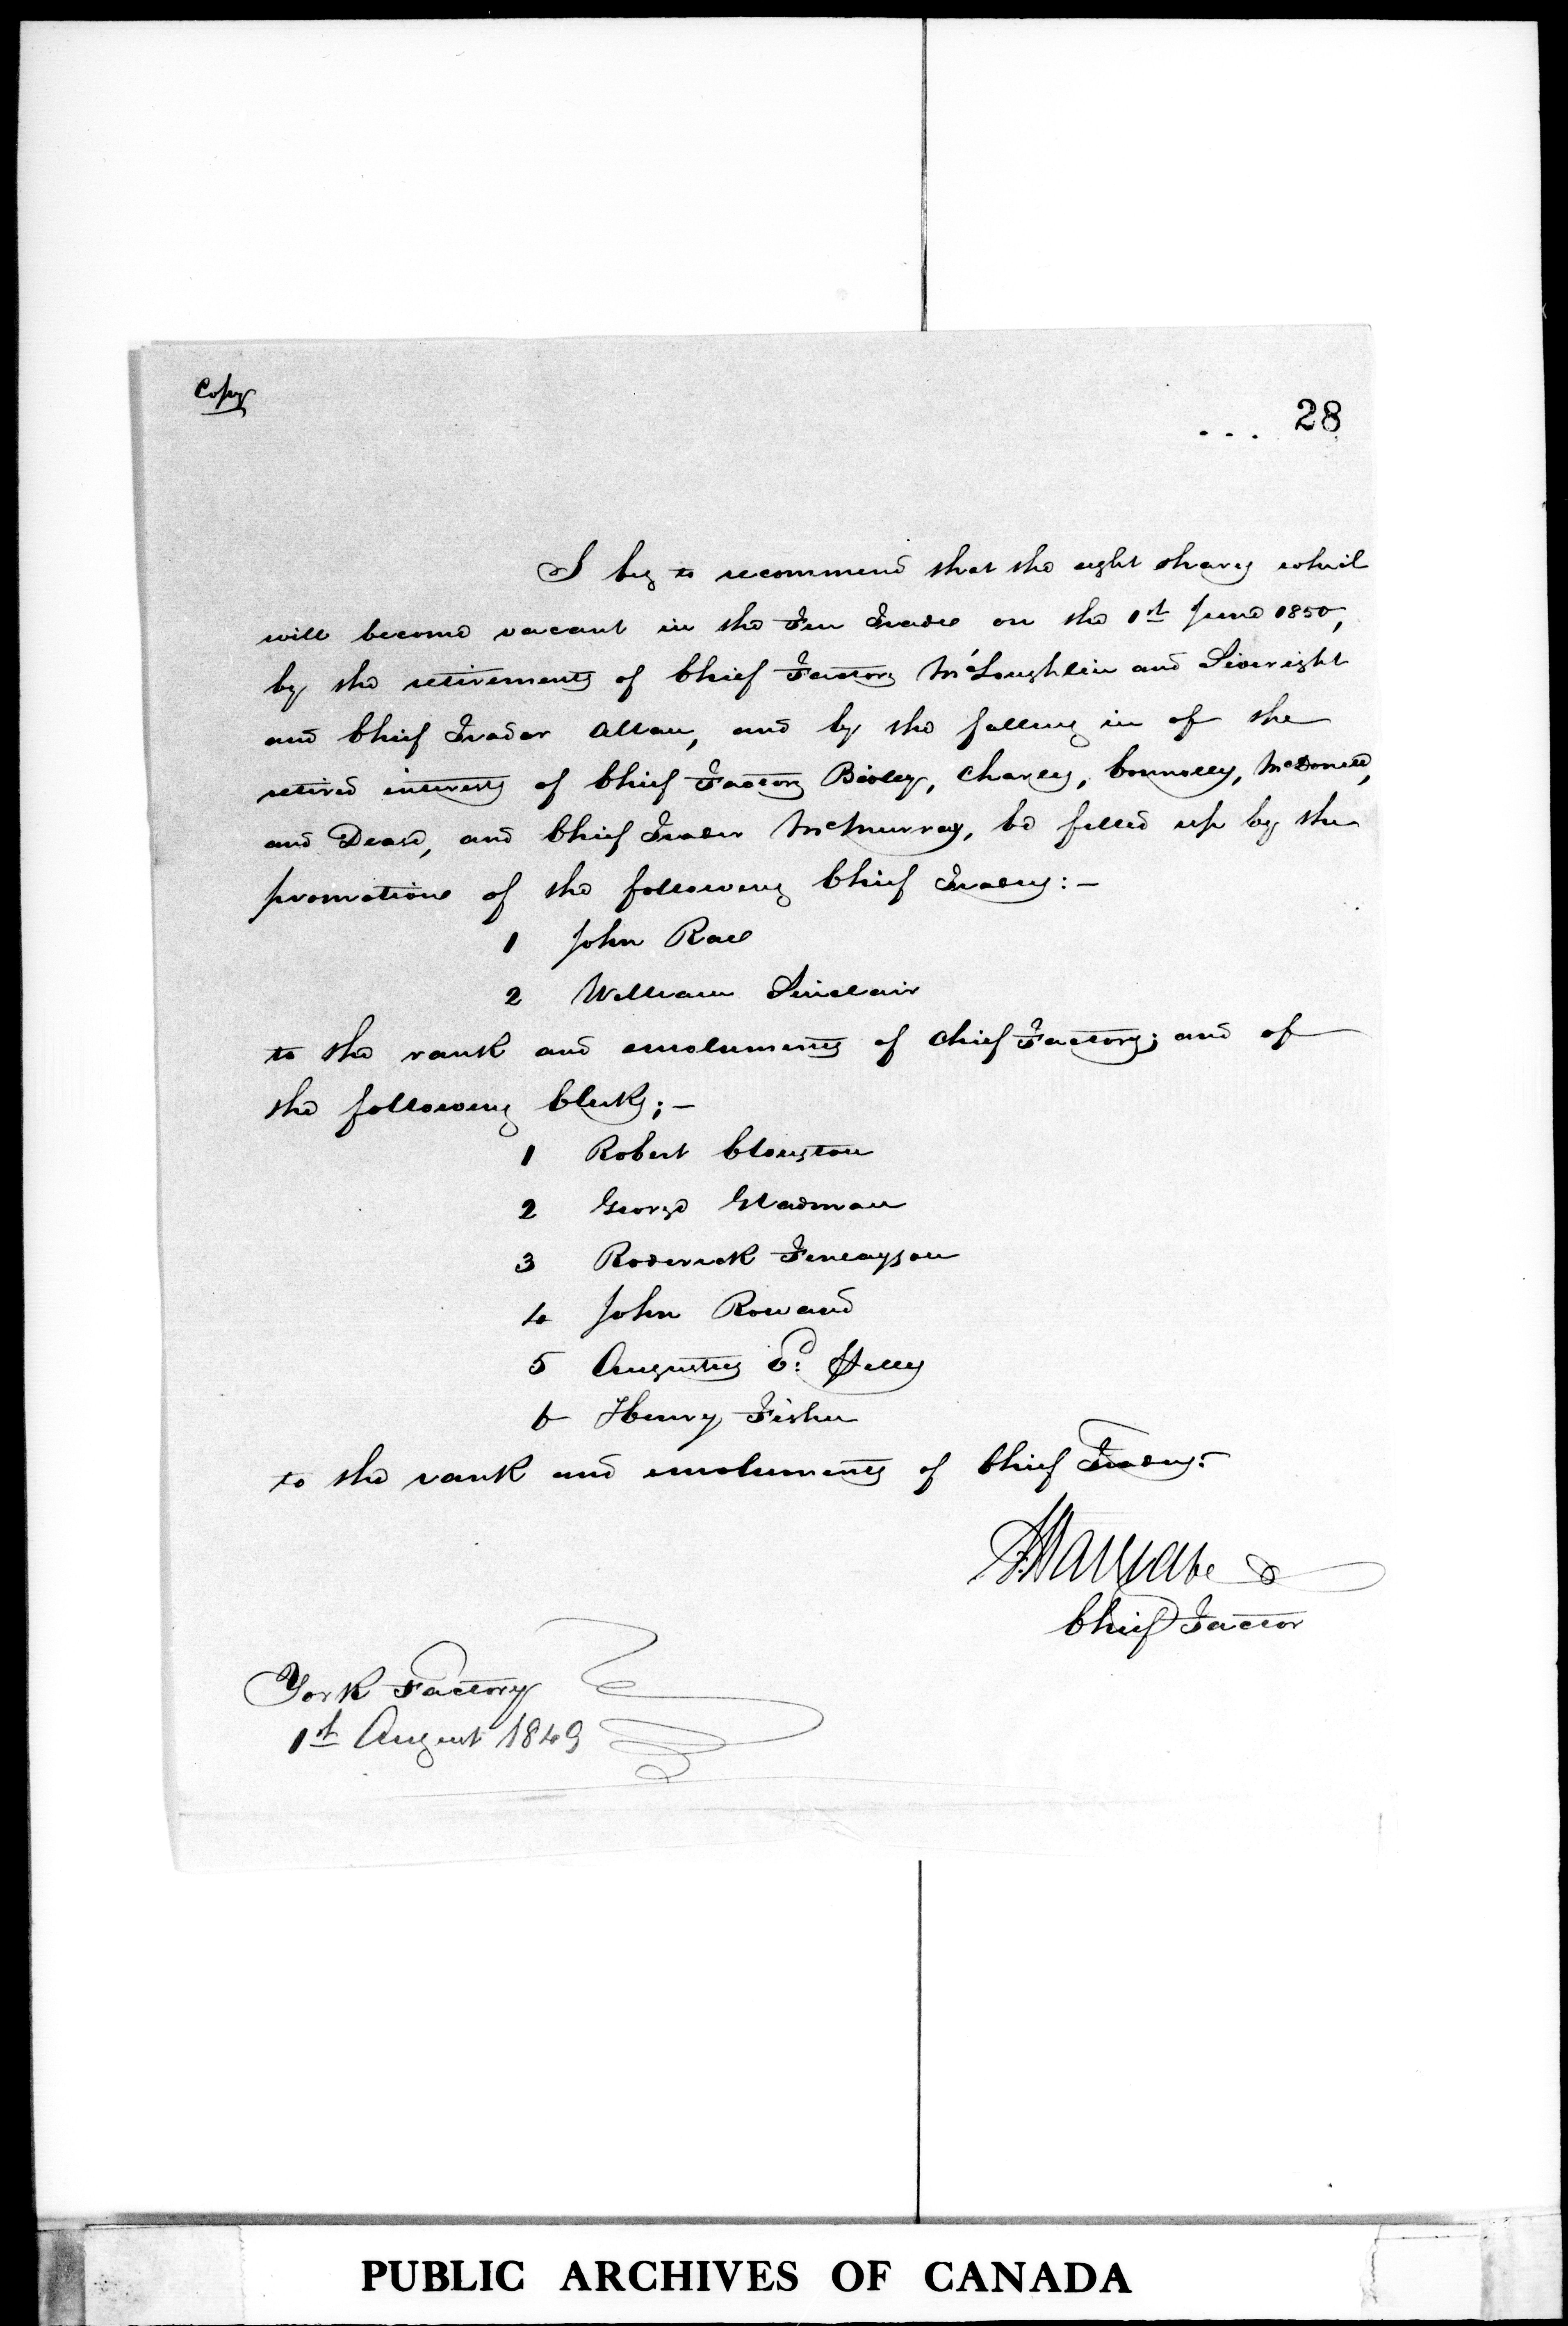 Copy
... 28
I beg to recommend that the eight shares which
will become vacant in the Fur Trade on the 1st June 1850,
by the retirements of Chief Factors McLoughlin and Siveright
and Chief Trader Allan, and by the falling in of the
retired interests of Chief Factors Bioley, Charles, Connolly, McDonell,
and Dease, and Chief Trader McMurray, be filled up by the
promotions of the following Chief Traders:-
1 John Rae
2 William Sinclair
to the rank and emoluments of Chief Factors; and of
the following Clerks;-
1 Robert Clouston
2 George Gladman
3 Roderick Finlayson
4 John Rowand
5 Augustus Ed: Pelly
6 Henry Fisher
to the rank and emoluments of Chief Traders.
J. Hargrave
Chief Factor
York Factory
1st August 1849
PUBLIC ARCHIVES OF CANADA